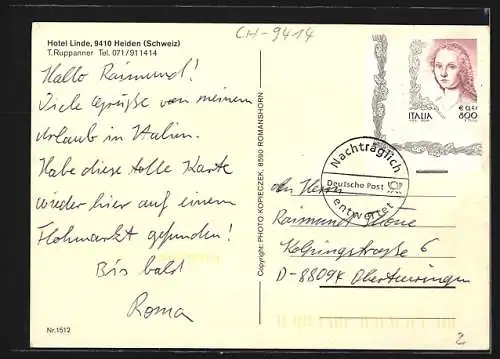 CH-9414
Hotel Linde, 9410 Heiden (Schweiz)
T. Ruppanner Tel. 071/911414
Hallo Raimund!
Viele Grüße von meinem
Urlaub in Italien.
Habe diese tolle Karte
wieder hier auf einem
Flohmarkt gefunden!
Bis bald
Roma
Nr. 1512
Copyright: PHOTO KOPIECZEK, 8590 ROMANSHORN
ITALIA
800
Nachträglich
Deutsche Post
entwertet
An Herrn
Raimund
Kolpingstraße 6
D-88094 Oberteuringen
2